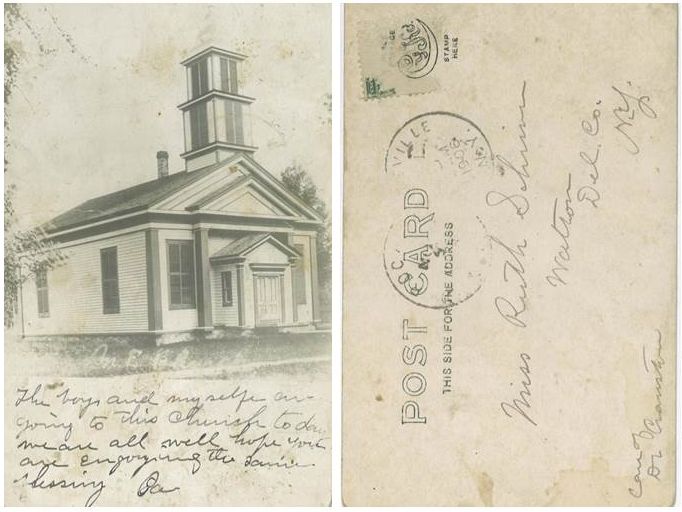 The boys and myselfe are
going to this Church to day
we are all well hope you
are engoying the same
blessing Pa
POST CARD
THIS SIDE FOR THE ADDRESS
STAMP
HERE
VILLE
N.Y.
Miss Ruth
Walton
Del. Co.
N.Y.
Care of
Dr